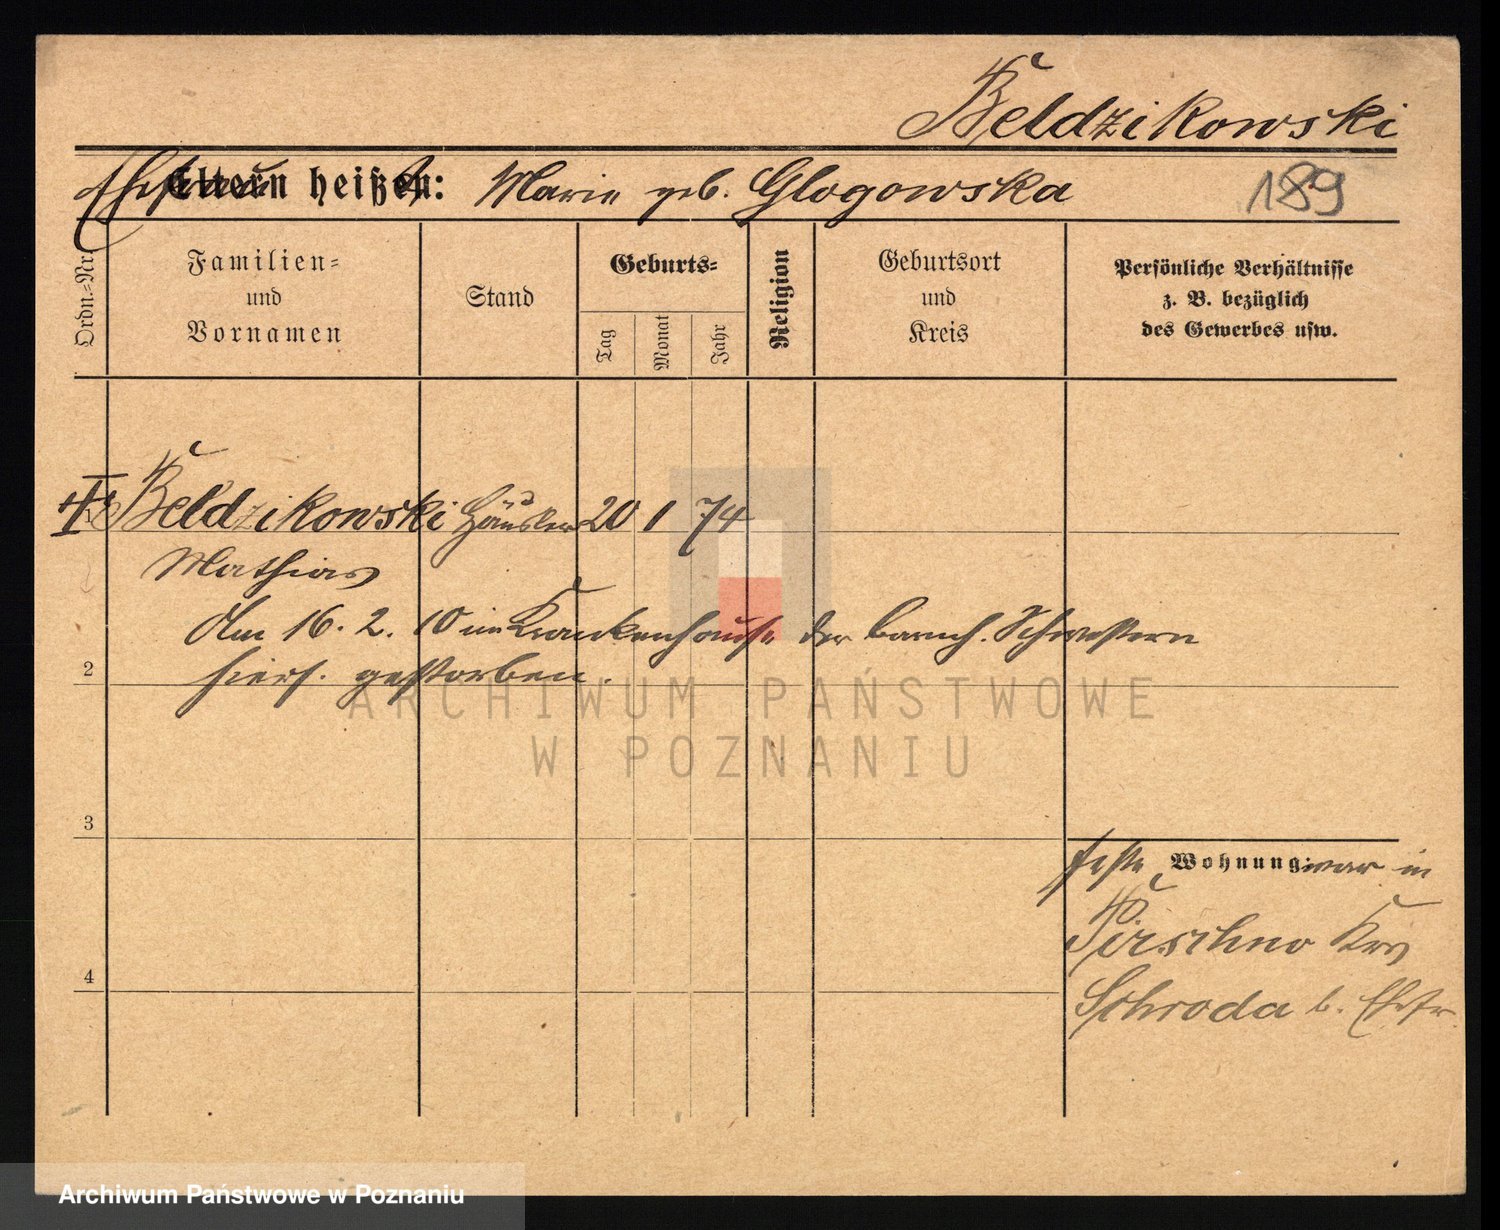 Beldzikowski
Ehefrau Eltern heißen: Marie geb. Glogowska 189
Ordn.=Nr.
Familien=
und
Vornamen
Stand
Geburts=
Tag
Monat
Jahr
Religion
Geburtsort
und
Kreis
Persönliche Verhältnisse
z. B. bezüglich
des Gewerbes usw.
Beldzikowski Häusler 20 1 74
Mathias
Am 16. 2. 10 im Krankenhause der barmh. Schwestern
2 hiers. gestorben.
3
feste Wohnung: war in
Pierschno Krs
4
Schroda b. Ehefr.
ARCHIWUM PAŃSTWOWE
W POZNANIU
Archiwum Państwowe w Poznaniu